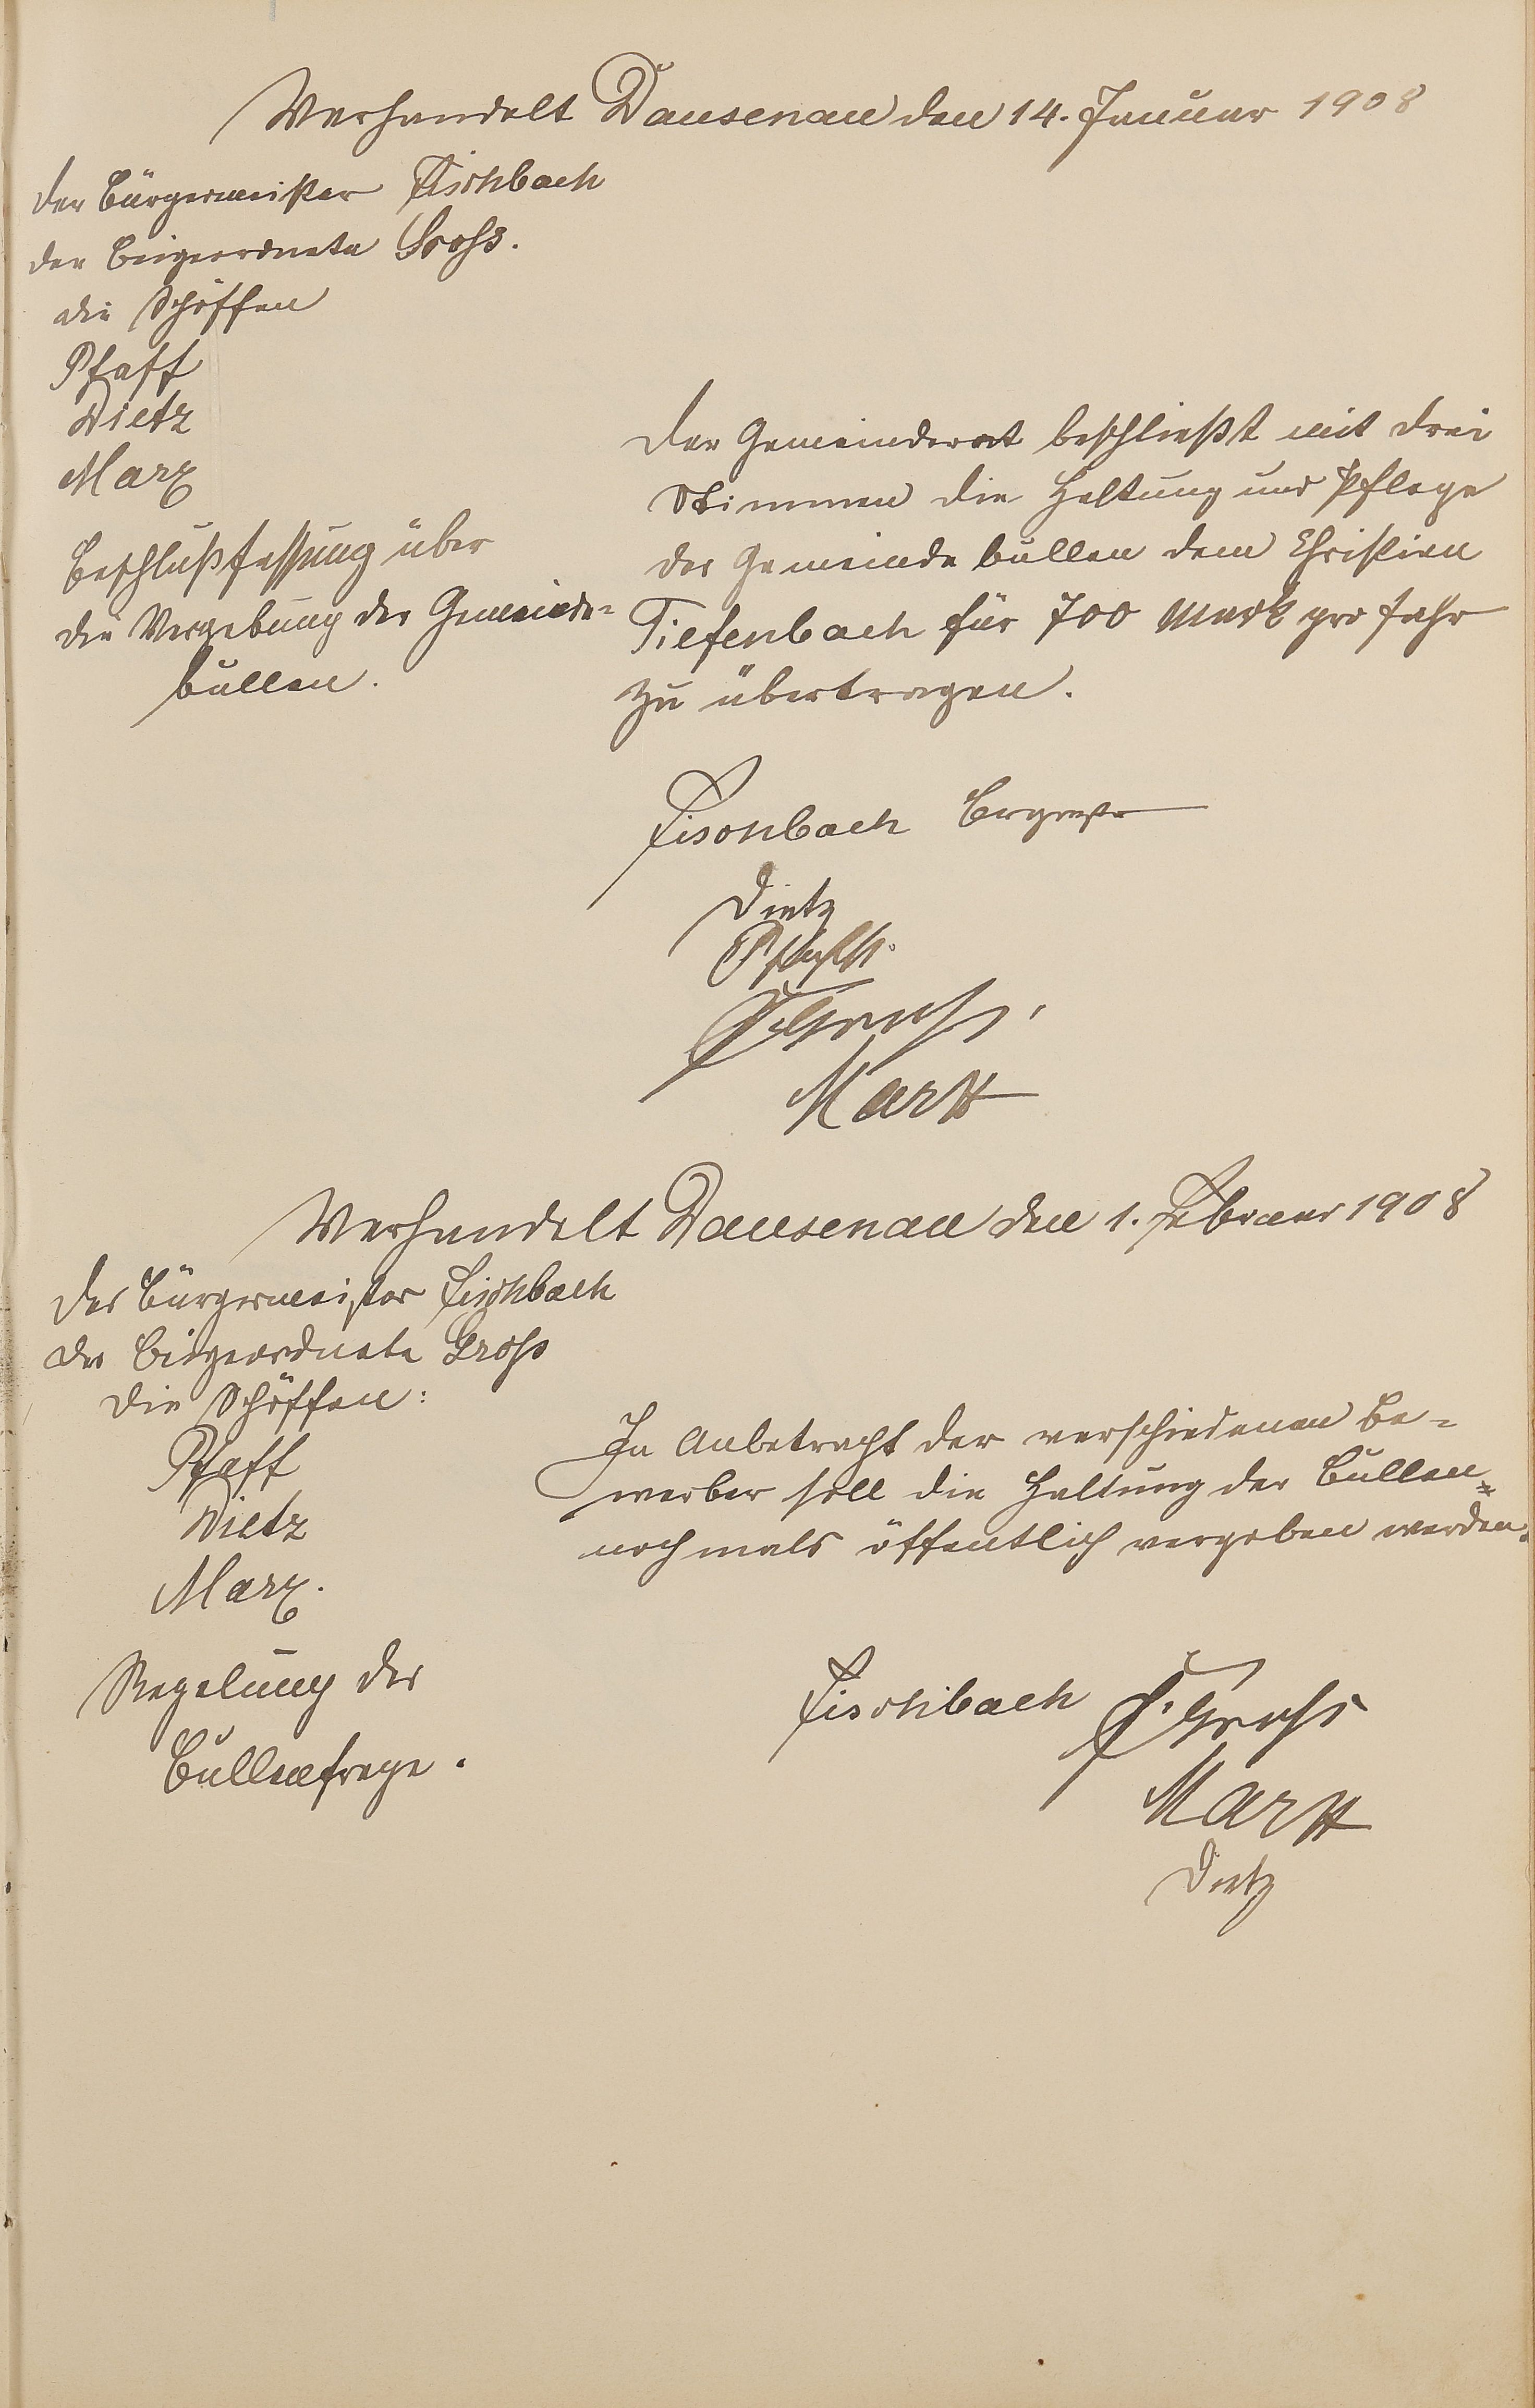 Verhandelt Dausenau den 14. Januar 1908
der Bürgermeister Fischbach
der Beigeordnete Gross.
die Schöffen
Pfaff
Dietz
Marx
Beschlußfassung über
die Vergebung der Gemeinde-
bullen.
Der Gemeinderat beschließt mit drei
Stimmen die Haltung und Pflege
der Gemeindebullen dem Christian
Tiefenbach für 700 Mark pro Jahr
zu übertragen.
Fischbach Brgmstr
Dietz
Pfaff
Gross.
Marx
Verhandelt Dausenau den 1. Februar 1908
Der Bürgermeister Fischbach
der Beigeordnete Gross
die Schöffen:
Pfaff
Dietz
Marx.
Regelung der
Bullenfrage.
In Anbetracht der verschiedenen Be-
werber soll die Haltung der Bullen
nochmals öffentlich vergeben werden.
Fischbach Gross
Marx
Dietz